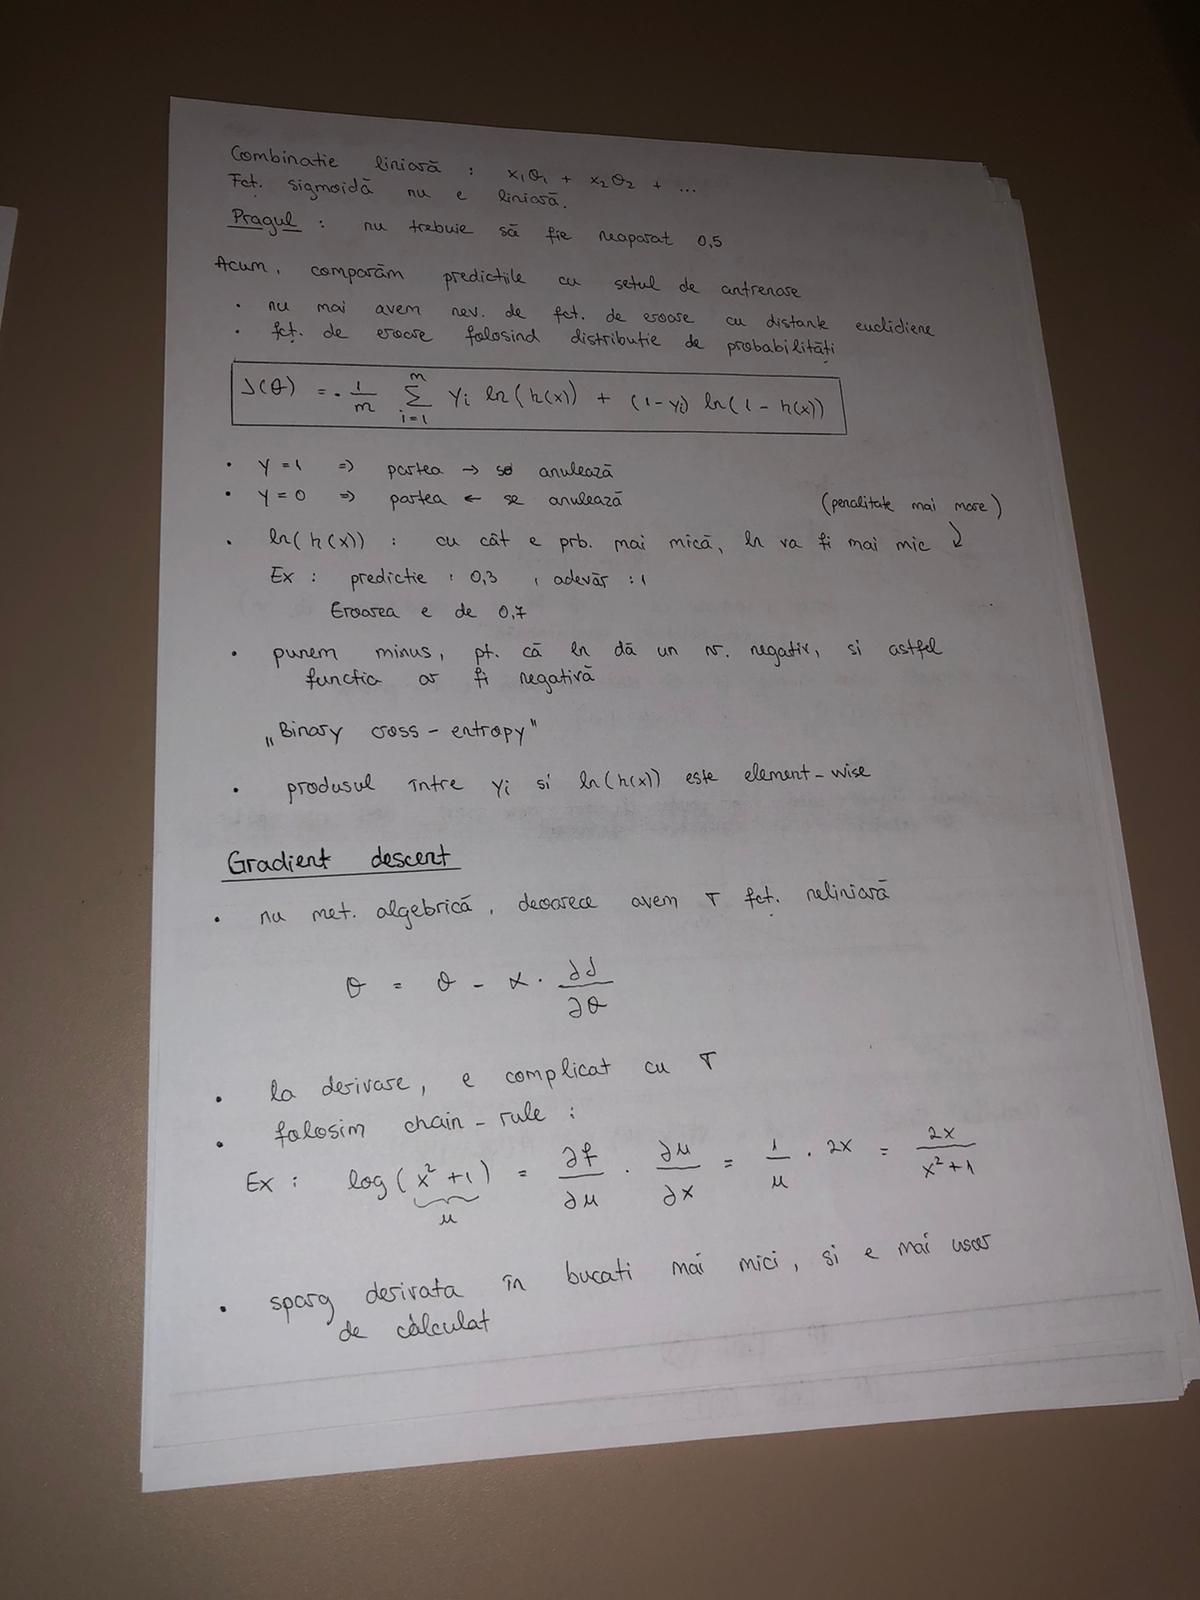 Combinatie liniară : x₁θ₁ + x₂θ₂ + ...
Fcț. sigmoidă nu e liniară.
Pragul : nu trebuie să fie neaparat 0,5
Acum, comparăm predictiile cu setul de antrenare
• nu mai avem nev. de fct. de eroare cu distante euclidiene
• fcț. de eroare folosind distributie de probabilități
J(θ) = - 1/m ∑_{i=1}^{m} yi ln(h(x)) + (1-yi) ln(1 - h(x))
• y = 1 => partea → se anulează
• y = 0 => partea ← se anulează
(penalitate mai mare)
• ln(h(x)) : cu cât e prb. mai mică, ln va fi mai mic
Ex : predictie : 0,3 , adevăr : 1
Eroarea e de 0,7
• punem minus, pt. că ln dă un nr. negativ, si astfel
functia ar fi negativă
„Binary cross-entropy"
• produsul între yi si ln(h(x)) este element-wise
Gradient descent
• nu met. algebrică, deoarece avem σ fcț. neliniară
θ = θ - α · ∂J/∂θ
• la derivare, e complicat cu σ
• folosim chain-rule :
Ex : log(x²+1) = ∂f/∂u · ∂u/∂x = 1/u · 2x = 2x/(x²+1)
u
• sparg derivata în bucati mai mici, si e mai usor
de calculat